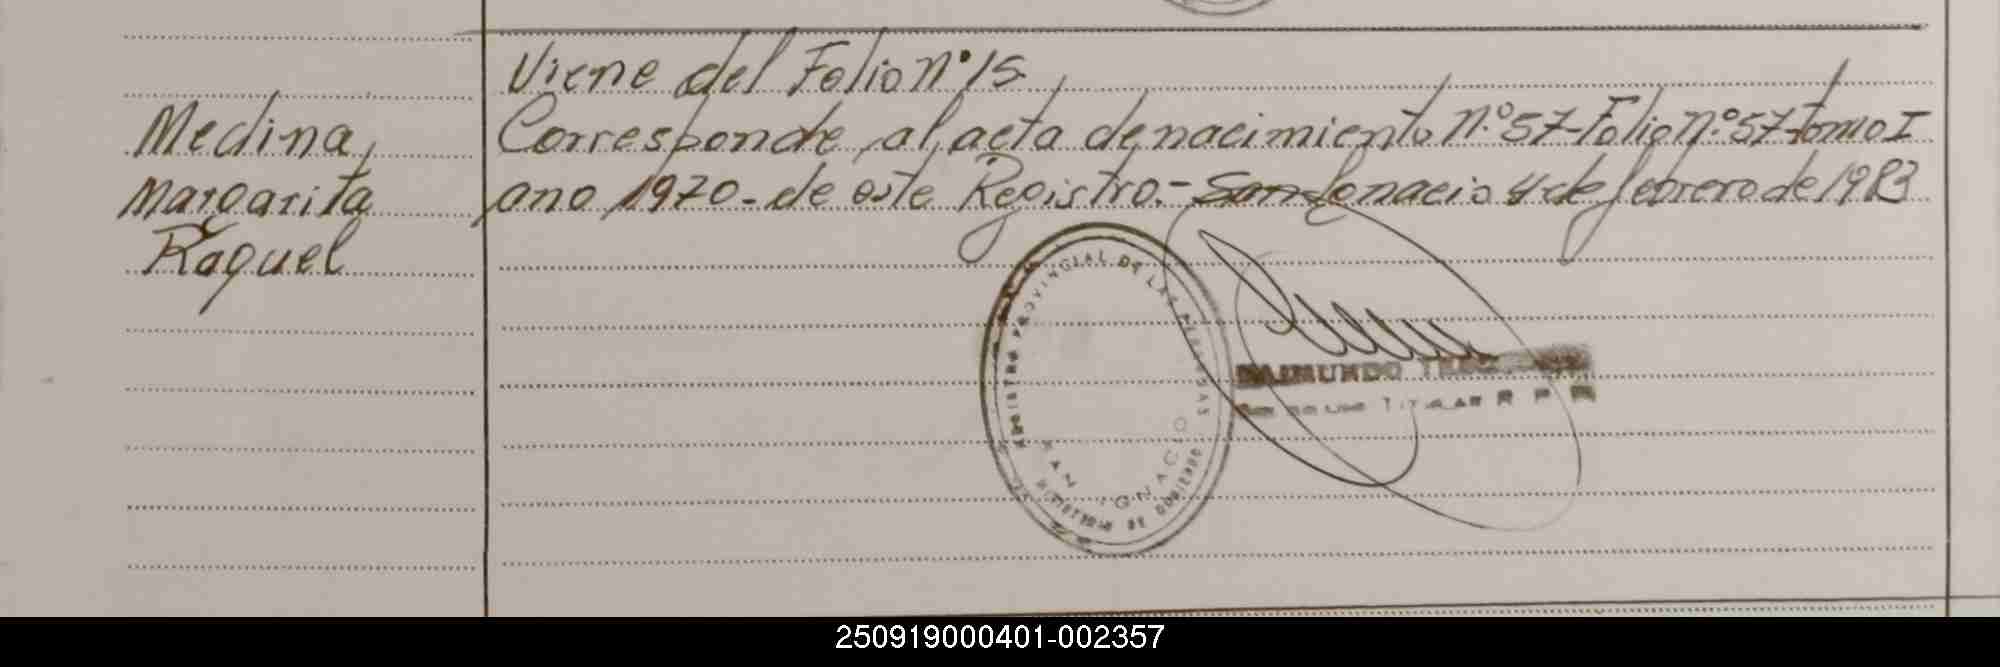 Viene del Folio n° 15
Medina
Margarita
Raquel
Corresponde al acta de nacimiento n.° 57 - Folio n.° 57 - tomo I
ano 1970 - de este Registro. - San Ignacio 4 de febrero de 1983
REGISTRO PROVINCIAL DE LAS PERSONAS
SAN IGNACIO
MINISTERIO DE GOBIERNO
RAIMUNDO
TITULAR R P P
250919000401-002357